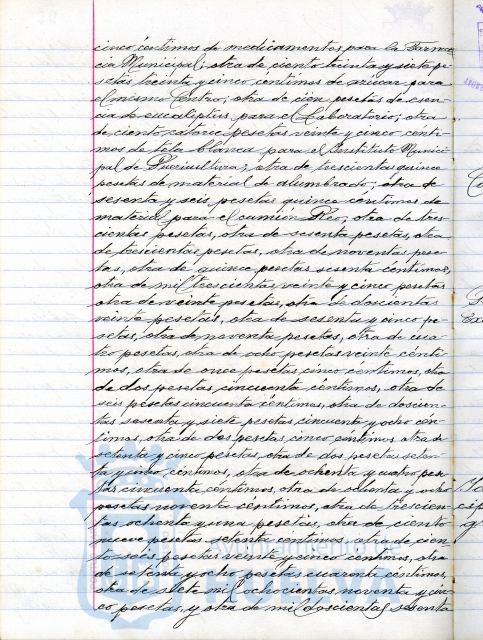 cinco céntimos de medicamentos para la Farma-
cia Municipal; otra de ciento treinta y siete pe-
setas treinta y cinco céntimos de azúcar para
el mismo Centro; otra de cien pesetas de esen-
cia de eucaliptus para el Laboratorio; otra
de ciento catorce pesetas veinte y cinco cénti-
mos de tela blanca para el Instituto Munici-
pal de Puericultura; otra de trescientas quince
pesetas de material de alumbrado; otra de
sesenta y seis pesetas quince céntimos de
material para el camión Reo; otra de tres-
cientas pesetas, otra de sesenta pesetas, otra
de trescientas pesetas, otra de noventa pese-
tas, otra de quince pesetas sesenta céntimos,
otra de mil trescientas veinte y cinco pesetas
otra de veinte pesetas, otra de doscientas
veinte pesetas, otra de sesenta y cinco pe-
setas, otra de noventa pesetas, otra de cua-
tro pesetas, otra de ocho pesetas veinte cénti-
mos, otra de once pesetas cinco céntimos, otra
de dos pesetas cincuenta céntimos, otra de
seis pesetas cincuenta céntimos, otra de doscien-
tas sesenta y siete pesetas cincuenta y ocho cén-
timos, otra de dos pesetas cinco céntimos, otra de
setenta y cinco pesetas, otra de dos pesetas seten-
ta y cinco céntimos, otra de ochenta y cuatro pese-
tas cincuenta céntimos, otra de ochenta y ocho
pesetas noventa céntimos, otra de trescien-
tas ochenta y una pesetas, otra de ciento
nueve pesetas setenta céntimos, otra de cien-
to seis pesetas veinte y cinco céntimos, otra
de setenta y ocho pesetas cuarenta céntimos,
otra de siete mil ochocientas noventa y cin-
co pesetas, y otra de mil doscientas sesenta